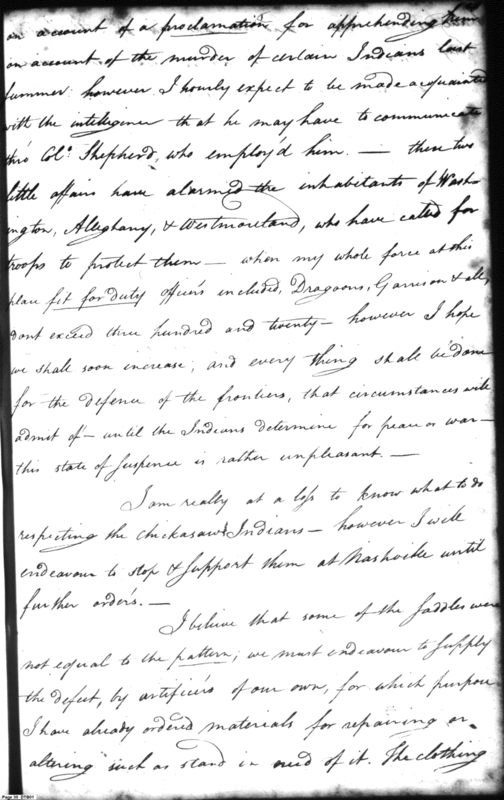 on account of a proclamation for apprehending him
on account of the murder of certain Indians last
summer however I hourly expect to be made acquainted
with the intelligence that he may have to communicate
thro' Colo. Shepherd, who employ'd him. — these two
little affairs have alarmed the inhabitants of Wash-
ington, Alleghany, & Westmoreland, who have called for
troops to protect them — when my whole force at this
place fit for duty officers included, Dragoons, Garrison & all,
dont exceed three hundred and twenty — however I hope
we shall soon increase, and every thing shall be done
for the defence of the frontiers, that circumstances will
admit of — until the Indians determine for peace or war —
this state of suspence is rather unpleasant. —
I am really at a loss to know what to do
respecting the chickasaw Indians — however I will
endeavour to stop & support them at Nashville until
further orders. —
I believe that some of the saddles were
not equal to the pattern; we must endeavour to supply
the defect, by artificers of our own, for which purpose
I have already ordered materials for repairing or
altering such as stand in need of it. The clothing
Page 30